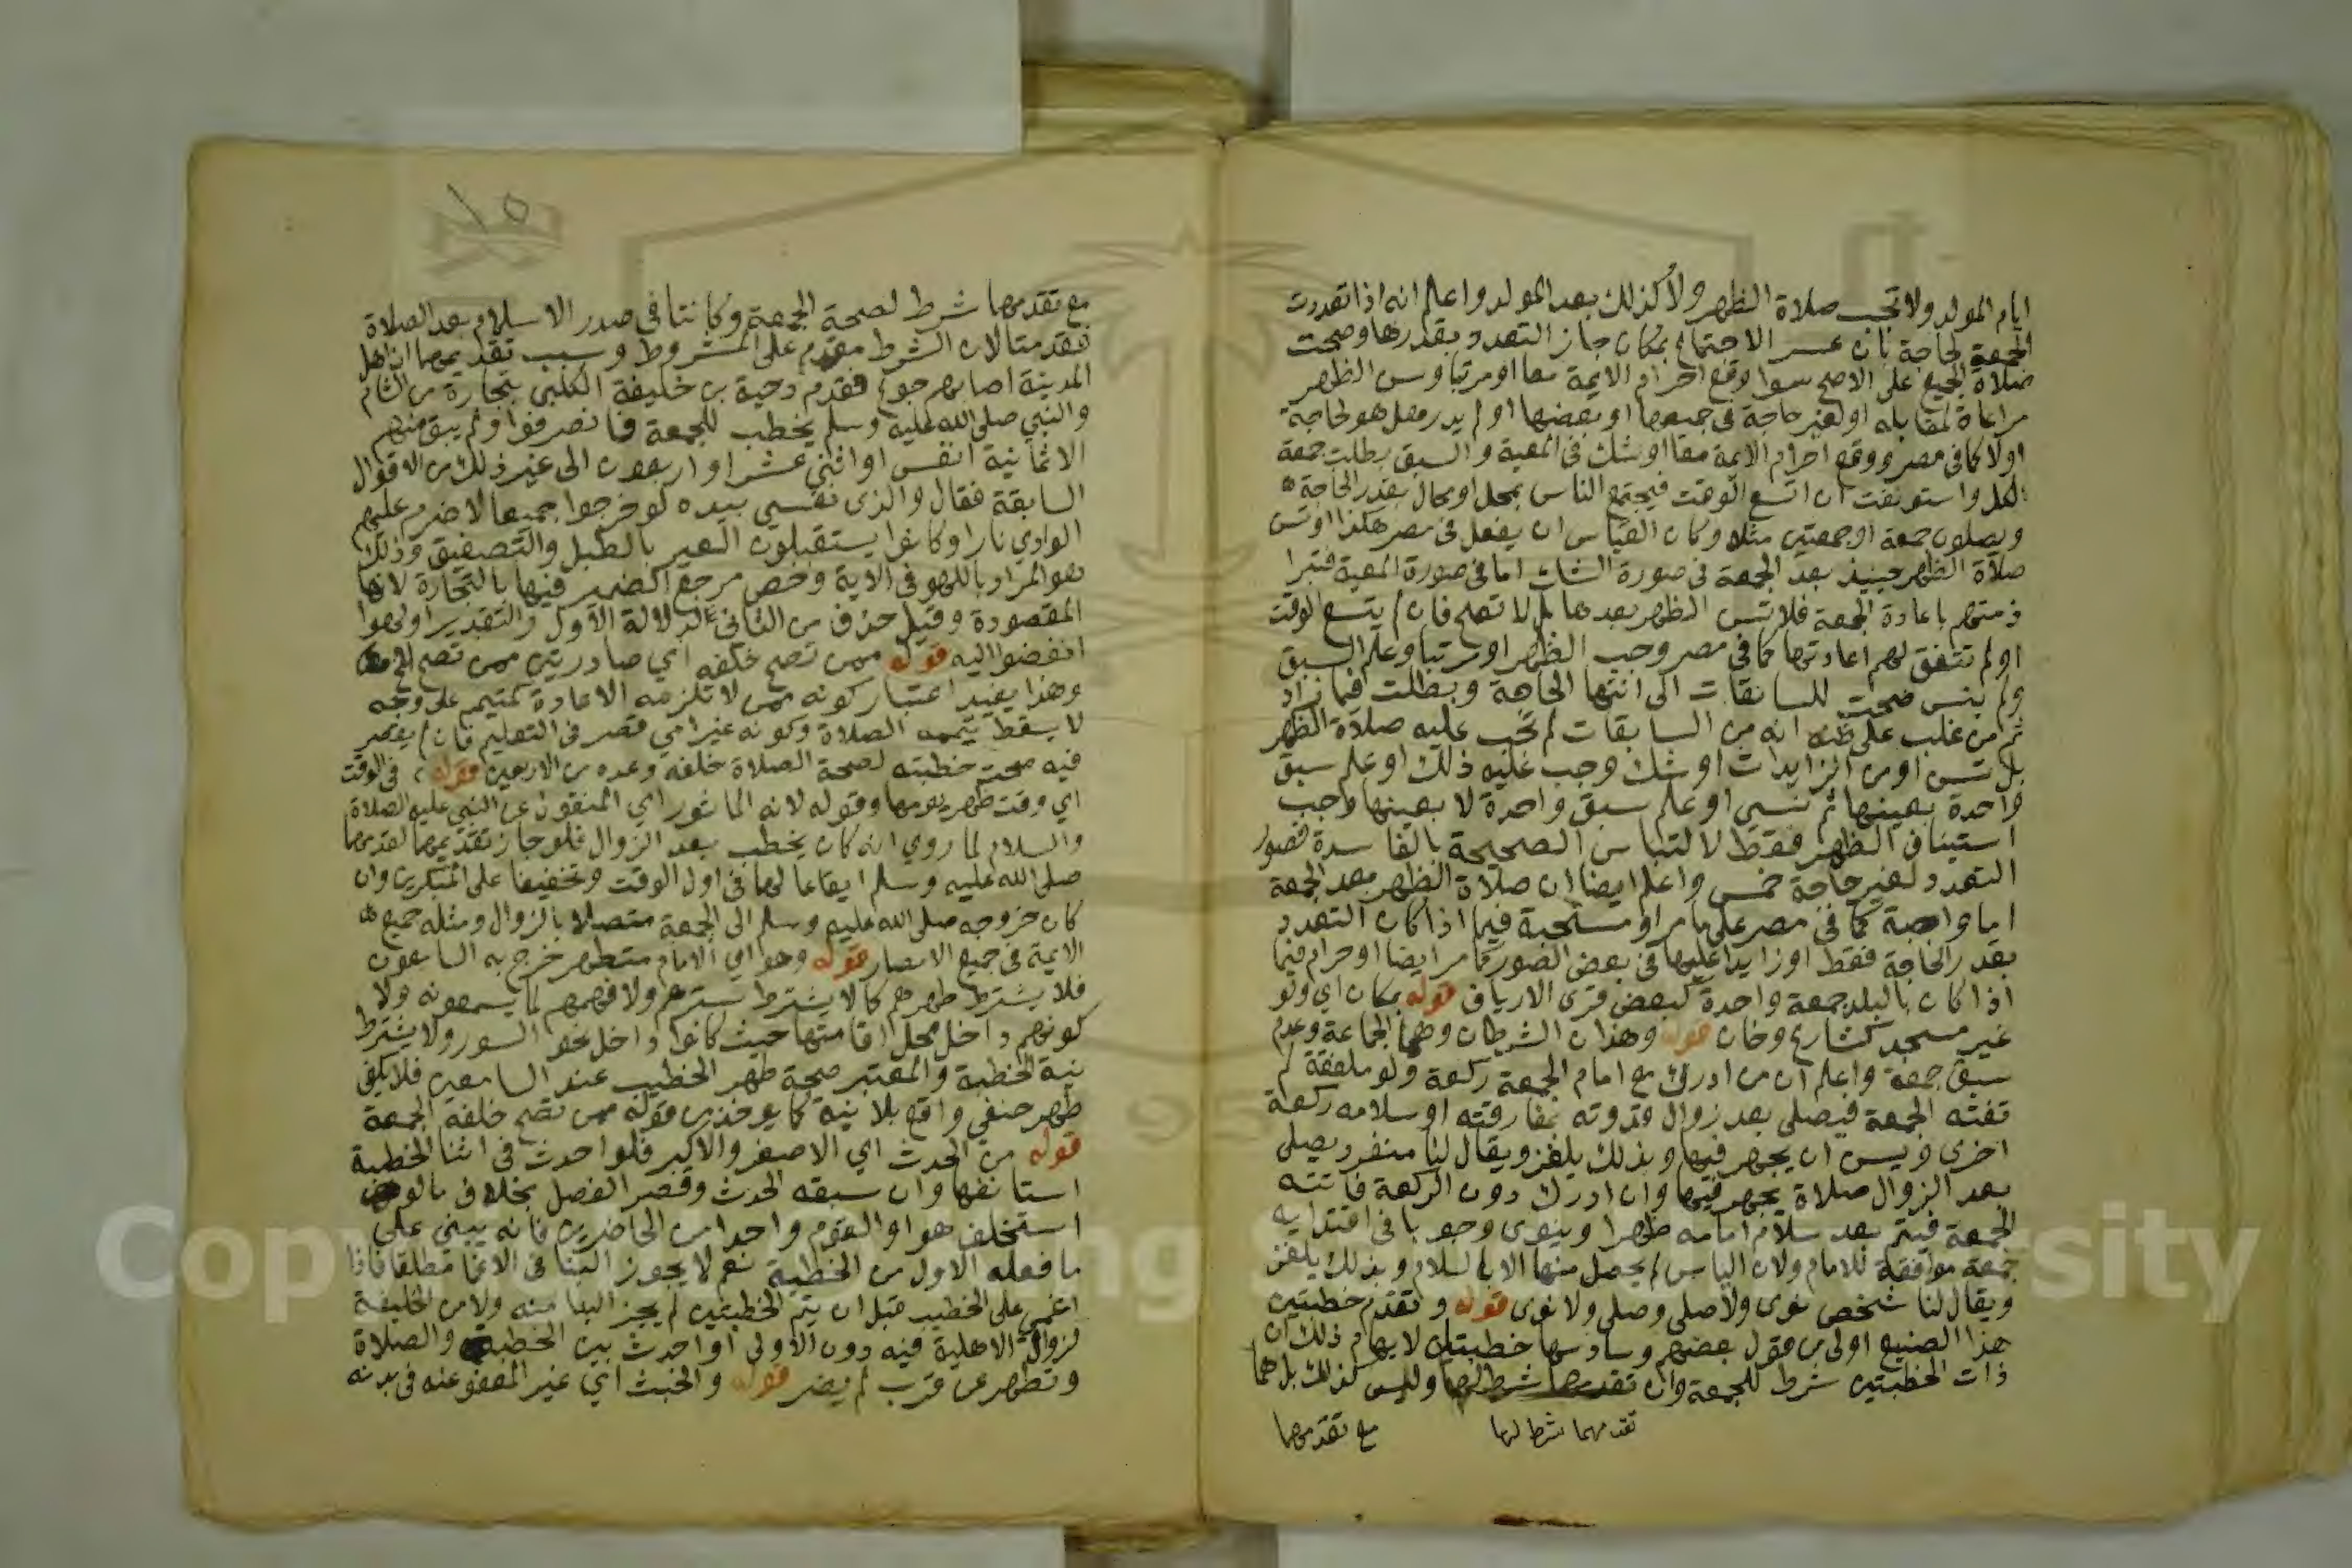 ايام المولد ولا تجب صلاة الظهر ولا كذلك بعد المولد واعلم انه اذا تعددت
الجمعة لحاجة بان عسر الاجتماع بمكان جاز التعدد بقدرها وصحت
صلاة الجميع على الاصح سوا وقع احرام الايمة معا او مرتبا وسن الظهر
مراعاة لمقابله او لغير حاجة في جميعها او بعضها او لم يدر هل هو لحاجة
اولا كما في مصر ووقع احرام الايمة معا او شك في المعية والسبق بطلت جمعة
الكل واستونفت ان اتسع الوقت فيجتمع الناس بمحل او محال بقدر الحاجة
ويصلون جمعة او جمعتين مثلا وكان القياس ان يفعل في مصر هكذا او تسن
صلاة الظهر حينيذ بعد الجمعة في صورة الشك اما في صورة المعية فتبرا
ذمتهم باعادة الجمعة فلا تسن الظهر بعدها بل لا تصح فان لم يتسع الوقت
او لم تتفق لهم اعادتها كما في مصر وجب الظهر او مرتبا وعلم السبق
ولم ينس صحت للسابقات الى انتها الحاجة وبطلت فيما زاد
ثم من غلب على ظنه انه من السابقات لم تجب عليه صلاة الظهر
بل تسن او من الزايدات او شك وجب عليه ذلك او علم سبق
واحدة بعينها ثم نسي او علم سبق واحدة لا بعينها وجب
استيناف الظهر فقط لالتباس الصحيحة بالفاسدة فصور
التعدد لغير حاجة خمس واعلم ايضا ان صلاة الظهر بعد الجمعة
اما واجبة كما في مصر على ما مر او مستحبة فيما اذا كان التعدد
بقدر الحاجة فقط او زايدا عليها في بعض الصور كما مر ايضا او حرام فيما
اذا كان بالبلد جمعة واحدة كبعض قرى الارياف قوله بمكان اي ولو
غير مسجد كشارع وخان قوله وهذان الشرطان وهما الجماعة وعدم
سبق جمعة واعلم ان من ادرك مع امام الجمعة ركعة ولو ملفقة لم
تفته الجمعة فيصلي بعد زوال قدوته بمفارقته او سلامه ركعة
اخرى ويسن ان يجهر فيها وبذلك يلغز ويقال لنا منفرد يصلي
بعد الزوال صلاة يجهر فيها وان ادرك دون الركعة فاتته
الجمعة فيتم بعد سلام امامه ظهرا وينوي وجوبا في اقتدايه
جمعة موافقة للامام ولان الياس لم يحصل منها الا بالسلام وبذلك يلغز
ويقال لنا شخص نوى ولا صلى وصلى ولا نوى قوله وتقدم خطبتين
هذا الصنيع اولى من قول بعضهم وسادسها خطبتان لايهام ذلك ان
ذات الخطبتين شرط للجمعة وان تقدمهما شرط لهما وليس كذلك بل هما
تقدمهما شرط لهما
مع تقدمهما
٨٥
مع تقدمهما شرط لصحة الجمعة وكانتا في صدر الاسلام بعد الصلاة
فقدمتا لان الشرط مقدم على المشروط وسبب تقديمهما ان اهل
المدينة اصابهم جوع فقدم دحية بن خليفة الكلبي بتجارة من الشام
والنبي صلى الله عليه وسلم يخطب للجمعة فانصرفوا ولم يبق منهم
الا ثمانية انفس او اثني عشر او اربعون الى غير ذلك من الاقوال
السابقة فقال والذي نفسي بيده لو خرجوا جميعا لاضرم عليهم
الوادي نارا وكانوا يستقبلون العير بالطبل والتصفيق وذلك
هو المراد باللهو في الاية وخص مرجع الضمير فيها بالتجارة لانها
المقصودة وقيل حذف من الثاني لدلالة الاول والتقدير او لهوا
انفضوا اليه قوله ممن تصح خلفه اي صادرتين ممن تصح الخ
وهذا يفيد اعتبار كونه ممن لا تلزمه الاعادة كمتيمم على وجه
لا يسقط بتيممه الصلاة وكونه غير امي قصر في التعليم فان لم يقصر
فيه صحت خطبته لصحة الصلاة خلفه وعده من الاربعين قوله في الوقت
اي وقت ظهر يومها وقوله لانه الماثور اي المنقول عن النبي عليه الصلاة
والسلام لما روي انه كان يخطب بعد الزوال فلو جاز تقديمهما لقدمهما
صلى الله عليه وسلم ايقاعا لها في اول الوقت وتخفيفا على المبكرين وان
كان خروجه صلى الله عليه وسلم الى الجمعة متصلا بالزوال ومثله جميع
الايمة في جميع الامصار قوله وهو اي الامام متطهر خرج به السامعون
فلا يشترط طهرهم كما لا يشترط سترهم ولا فهمهم لما يسمعونه ولا
كونهم داخل محل اقامتها حيث كانوا داخل نحو السور ولا يشترط
نية الخطبة والمعتبر صحة طهر الخطيب عند السامعين فلا يكفي
طهر حنفي واقع بلا نية كما يوخذ من قوله ممن تصح خلفه الجمعة
قوله من الحدث اي الاصغر والاكبر فلو احدث في اثنا الخطبة
استانفها وان سبقه الحدث وقصر الفصل بخلاف ما لو
استخلف هو او القوم واحدا من الحاضرين فانه يبني على
ما فعله الاول من الخطبة نعم لا يجوز البنا في الاغما مطلقا فاذا
اغمي على الخطيب قبل ان يتم الخطبتين لم يجز البنا منه ولا من الخليفة
لزوال الاهلية فيه دون الاولى او احدث بين الخطبة والصلاة
وتطهر عن قرب لم يضر قوله والخبث اي غير المعفو عنه في بدنه